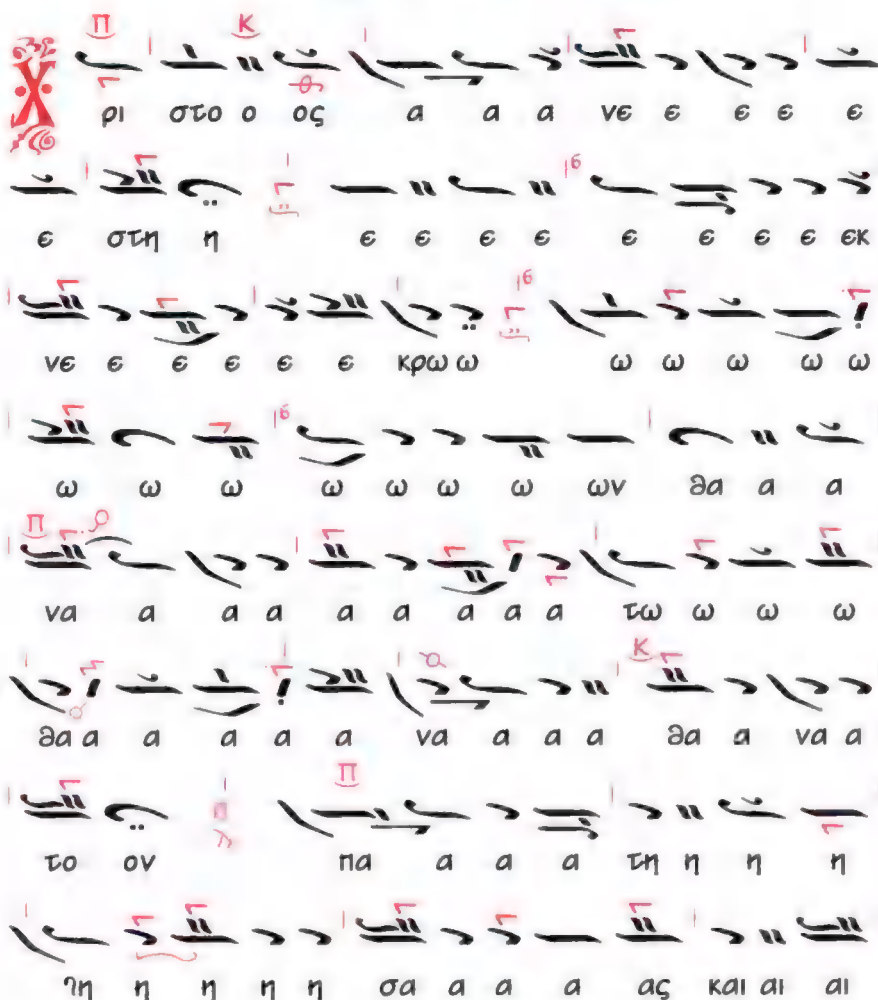 Χ ρι στο ο ος α α α νε ε ε ε ε
ε στη η ε ε ε ε ε ε ε ε εκ
νε ε ε ε ε ε κρω ω ω ω ω ω ω
ω ω ω ω ω ω ω ων θα α α
να α α α α α α α α τω ω ω ω
θα α α α α α να α α α θα α να α
το ον πα α α α τη η η η
η η η η η σα α α α ας και αι αι